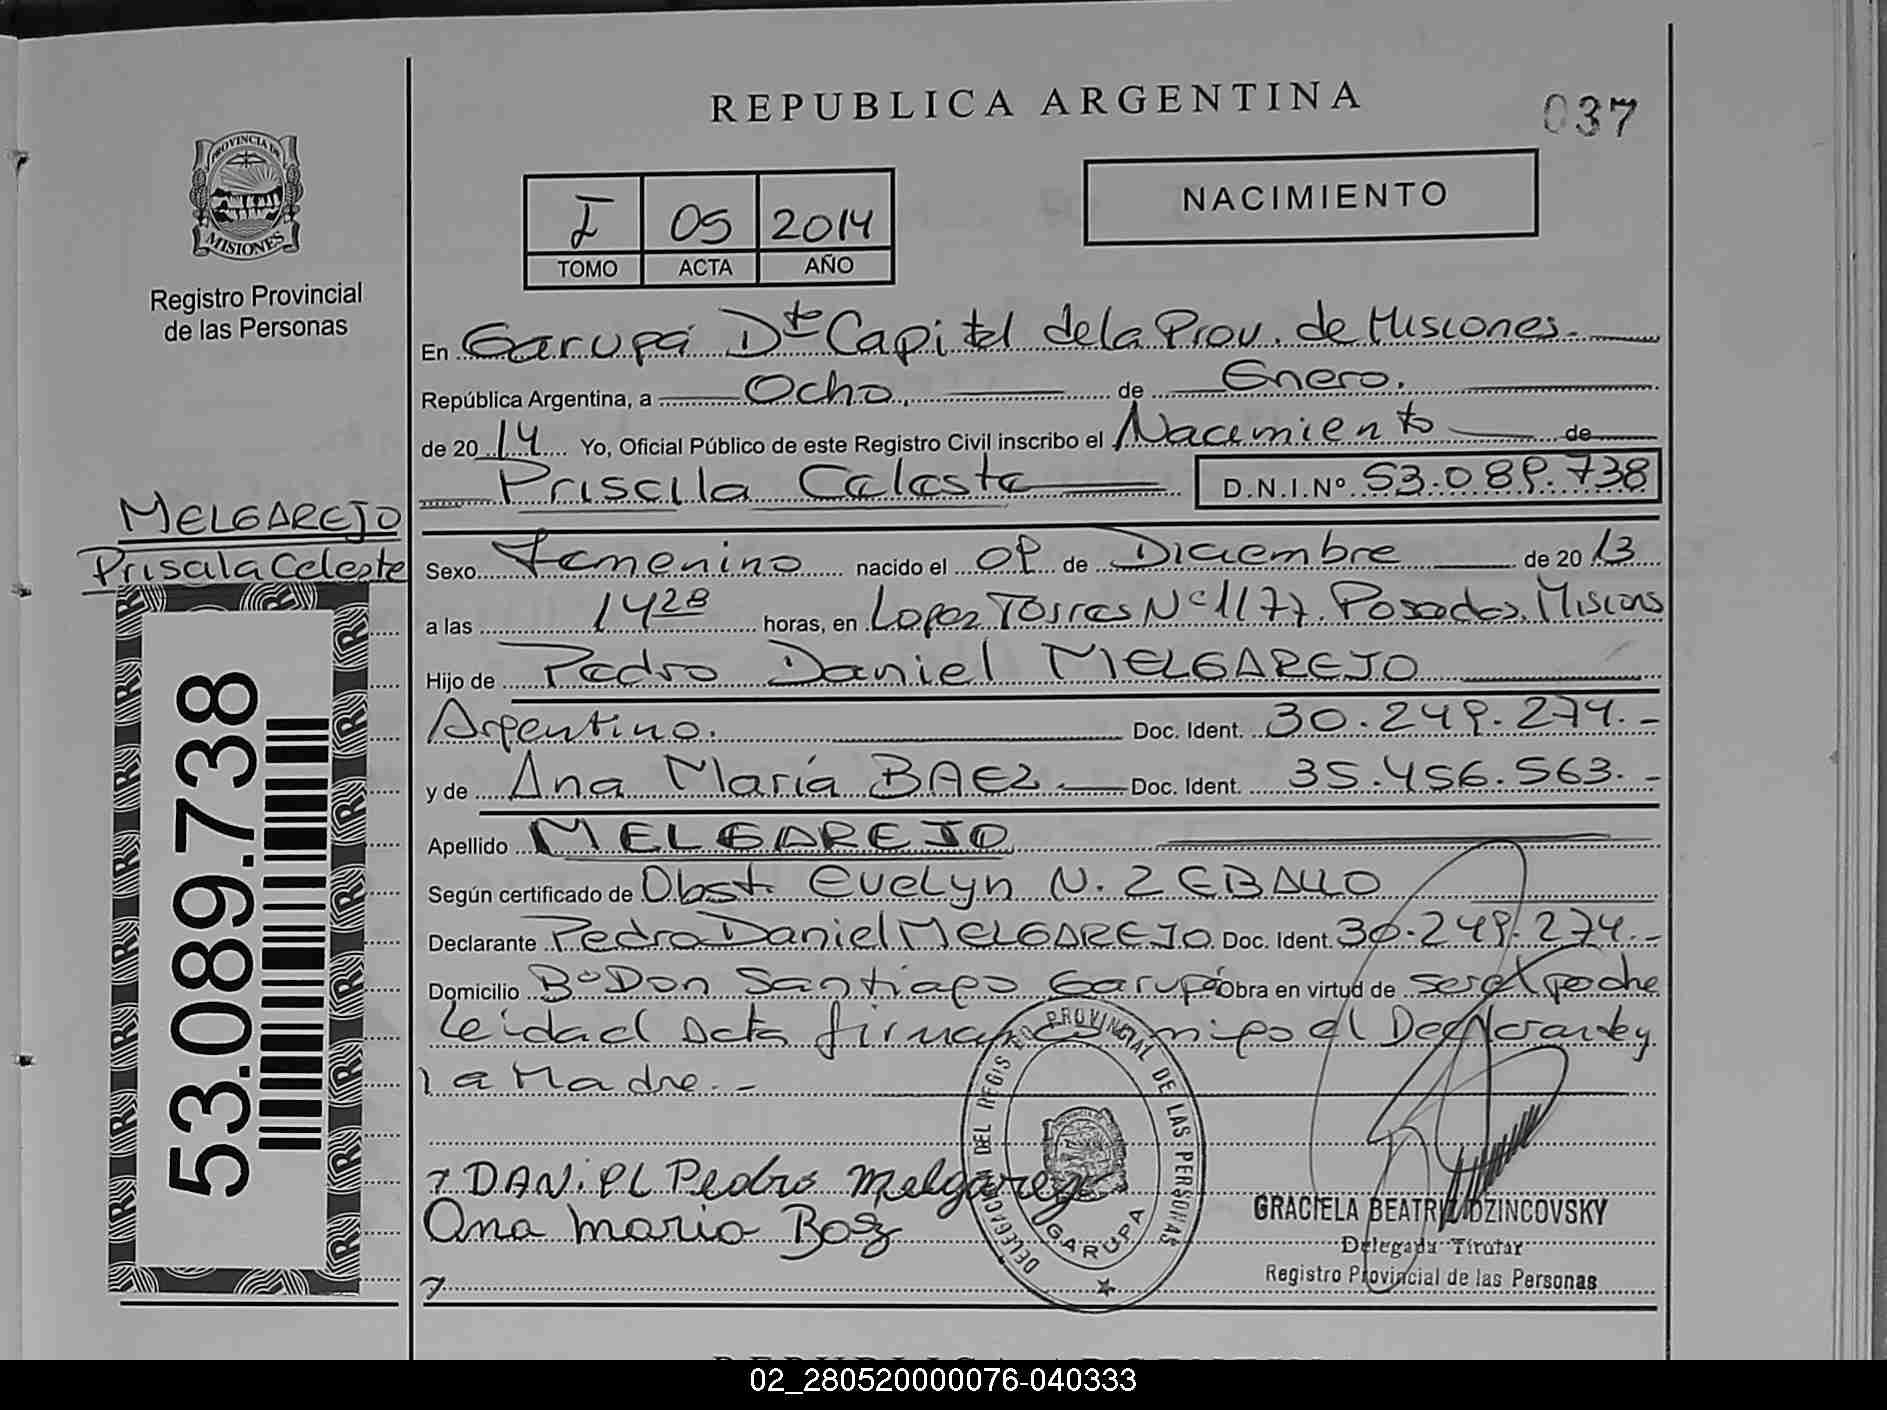 REPUBLICA ARGENTINA
037
PROVINCIA DE
MISIONES
Registro Provincial
de las Personas
I 05 2014
TOMO ACTA AÑO
NACIMIENTO
En Garupá Dto Capital de la Prov. de Misiones.
República Argentina, a Ocho, de Enero.
de 2014 Yo, Oficial Público de este Registro Civil inscribo el Nacimiento de
Priscila Celeste D.N.I.Nº 53.089.738
MELGAREJO
Priscila Celeste
53.089.738
Sexo Femenino nacido el 09 de Diciembre de 2013
a las 14 28 horas, en Lopez Torres Nº 1177. Posadas. Misions
Hijo de Pedro Daniel MELGAREJO
Argentino. Doc. Ident. 30.249.274.-
y de Ana María BAEZ.- Doc. Ident. 35.456.563.-
Apellido MELGAREJO
Según certificado de Obst. Evelyn N. ZEBALLO
Declarante Pedro Daniel MELGAREJO. Doc. Ident. 30.249.274.-
Domicilio Bº Don Santiago Garupá Obra en virtud de ser el padre
Leida el Acta firman migo el Declarante y
la Madre.-
DANiEL Pedro Melgarejo
Ana maria Baez
DELEGACION DEL REGISTRO PROVINCIAL DE LAS PERSONAS
GARUPA
GRACIELA BEATRIZ DZINCOVSKY
Delegada Titular
Registro Provincial de las Personas
REPUBLICA ARGENTINA
02_280520000076-040333